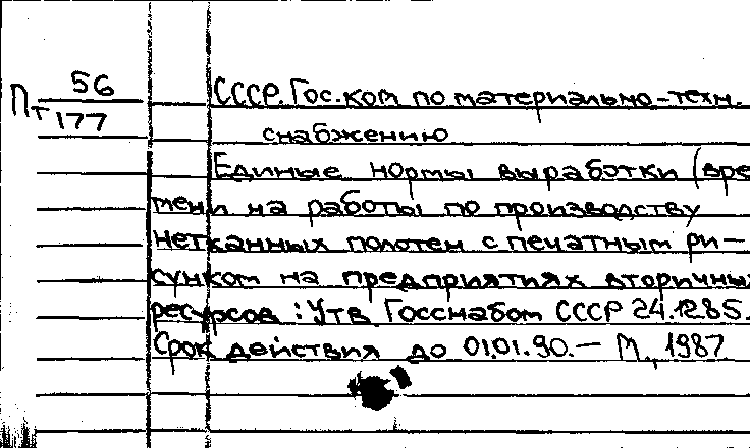 Пт 56
177
СССР. Гос. ком по материально-техн.
снабжению
Единые нормы выработки (вре
мени на работы по производству
нетканных полотен с печатным ри-
сунком на предприятиях вторичны
ресурсов: Утв Госснабом СССР 24.1285.
Срок действия до 01.01.90.- М., 1987